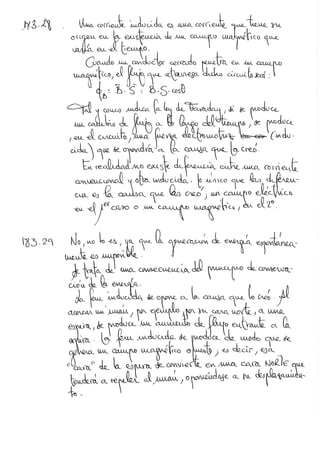 183.28. Una corriente inducida es una corriente que tiene su
origen en la existencia de un campo magnético que
varía en el tiempo.
Cuando un conductor cerrado penetra en un campo
magnético, el flujo que atraviesa dicho circuito será:
ΦB = B · S = B·S·cosθ
Tal y como indica la ley de Faraday, si se produce
un cambio de flujo a lo largo del tiempo, se produce
, en el circuito, una fuerza electromotriz (indu-
cida) que se opondrá a la causa que la creó.
En realidad no existe diferencia entre una corriente
convencional y otra inducida. Lo único que las diferen-
cia es la causa que las creó, un campo eléctrico
en el 1er caso o un campo magnético, en el 2º.
183.29 No, no lo es, ya que la generación de energía espontánea-
mente es imposible.
Se trata de una consecuencia del principio de conserva-
ción de la energía.
La fem inducida se opone a la causa que la creó. Al
acercar un imán, por ejemplo, por su cara norte, a una
espira, se produce un aumento de flujo entrante a la
espira. La fem inducida se produce de modo que se
genera un campo magnético opuesto, es decir, esa
"cara" de la espira se convierte en una cara NORTE que
tenderá a repeler al imán, oponiéndose a su desplazamien-
to.